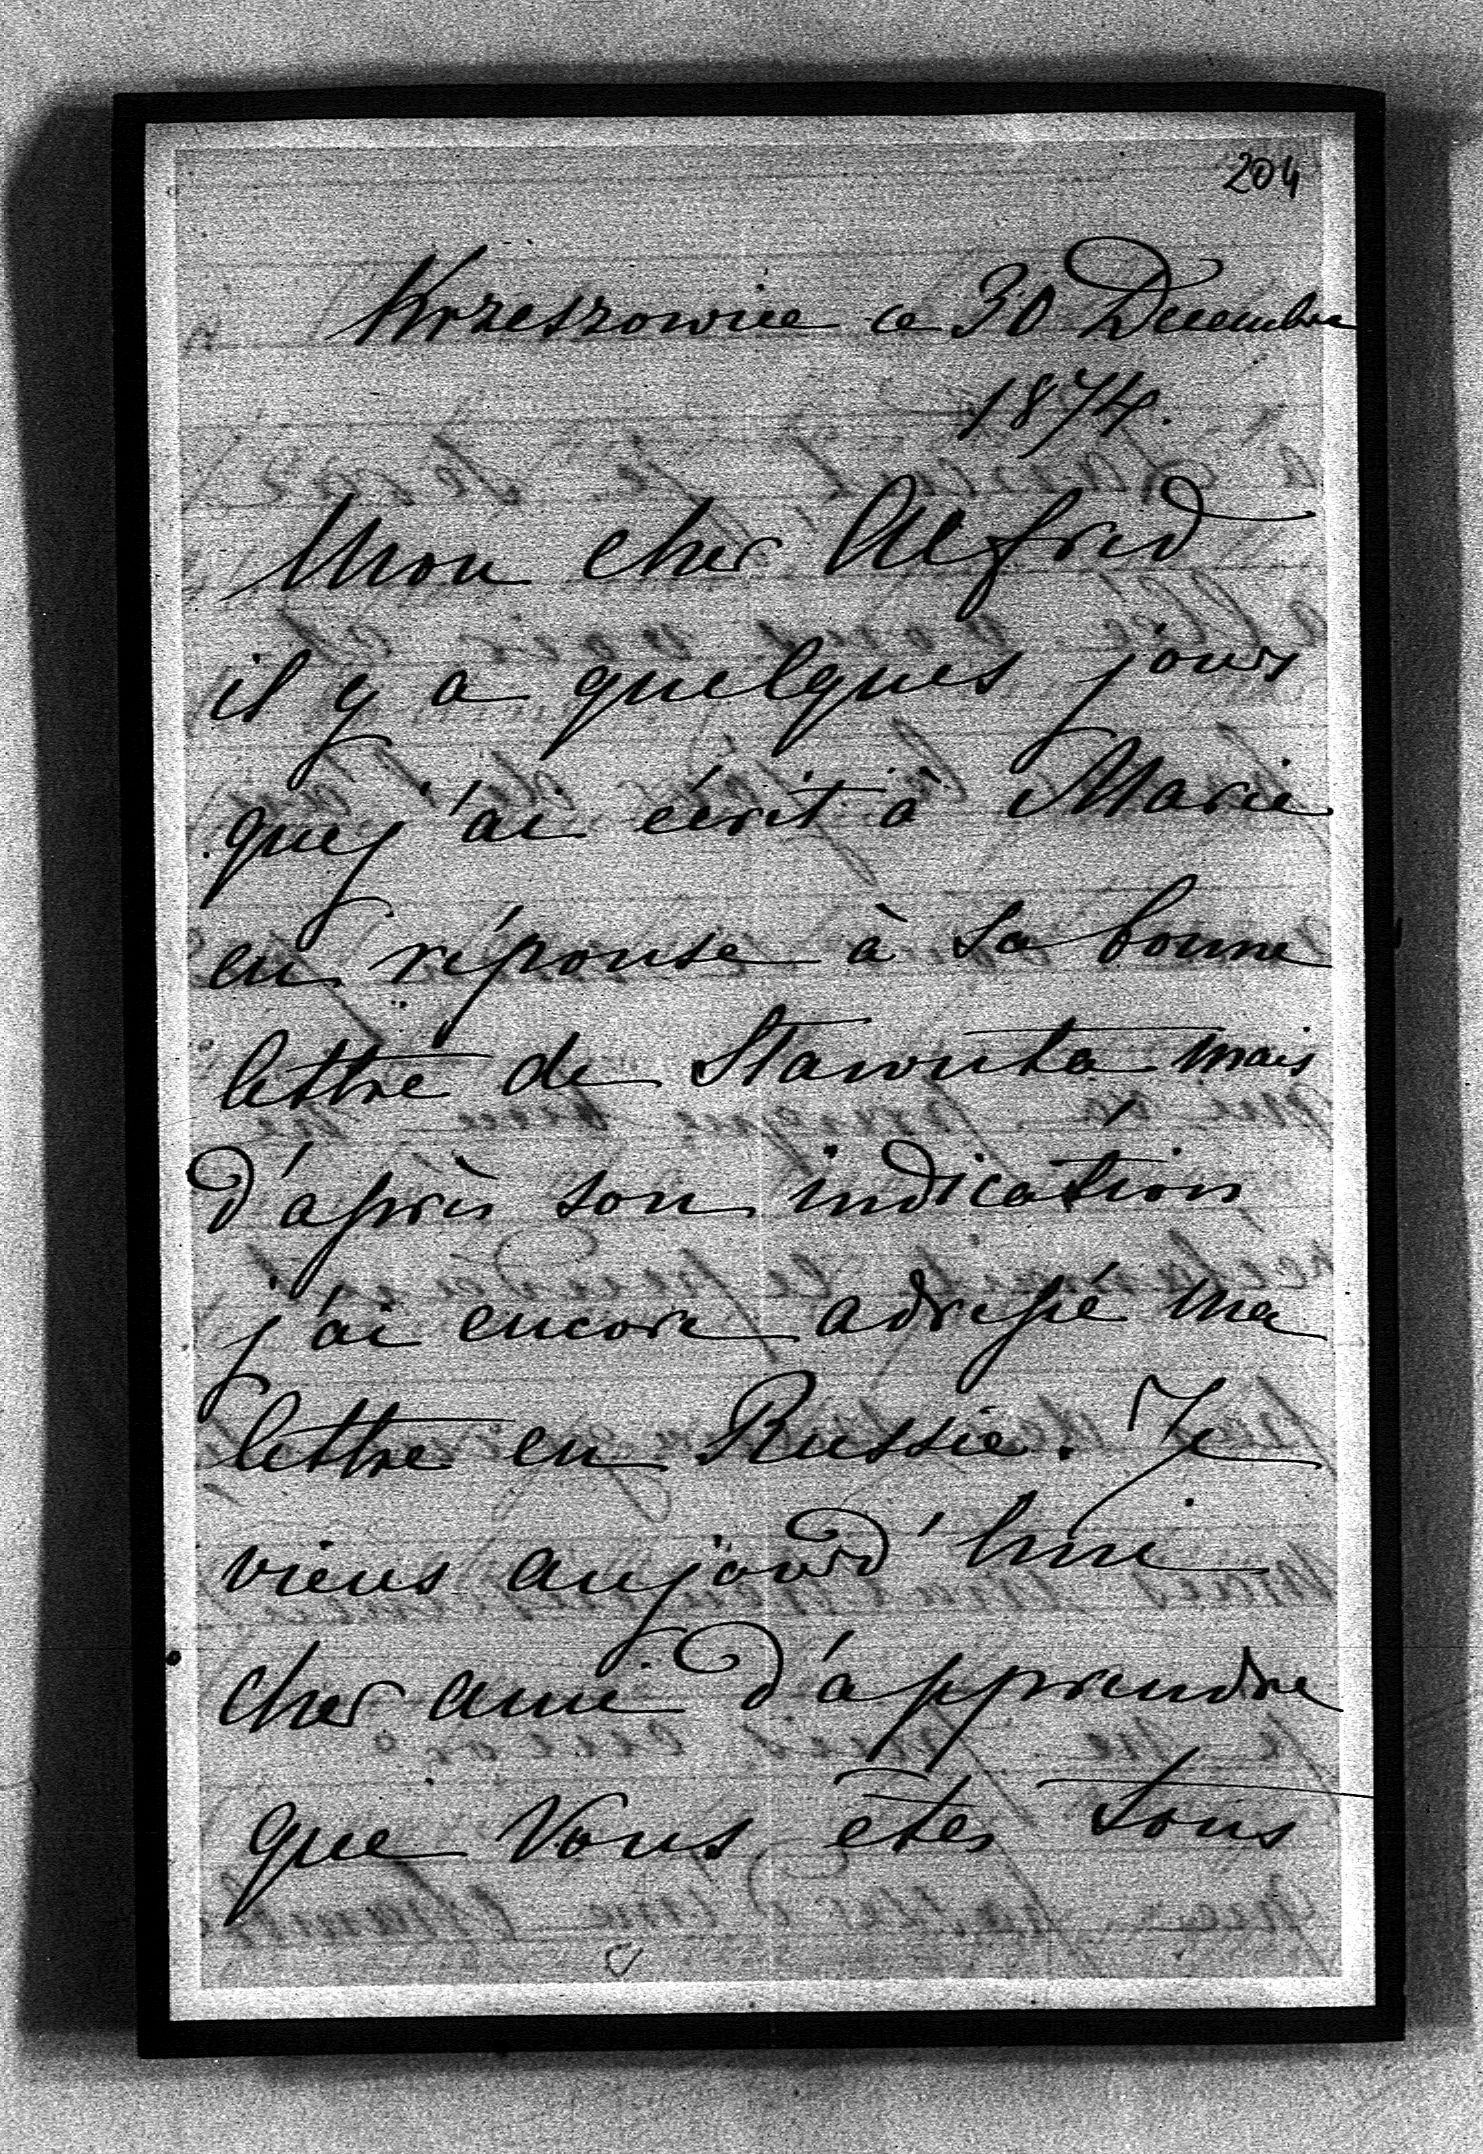 204
Krzeszowice ce 30 Decembre
1874.
Mon cher Alfred
il y a quelques jours
que j'ai écrit à Marie
en réponse à sa bonne
lettre de Slawuta mais
d'après son indication
j'ai encore adressé ma
lettre en Russie. Je
viens aujourd'hui
cher ami d'apprendre
que Vous êtes tous